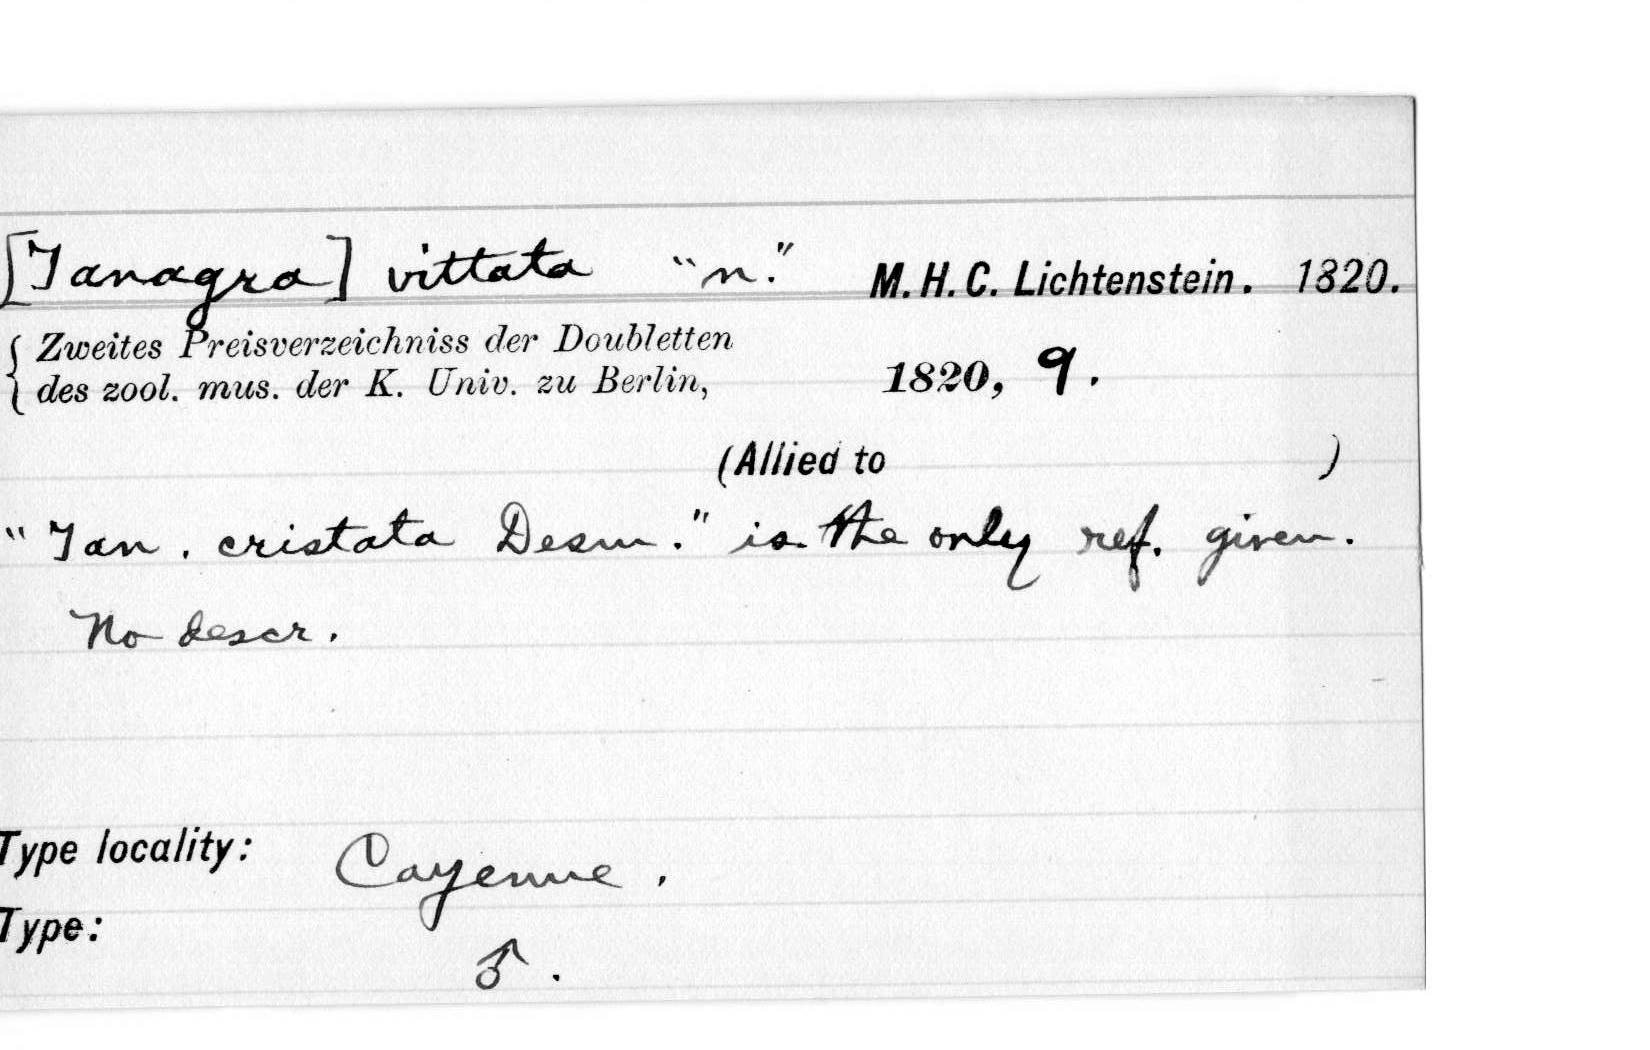 [Tanagra] vittata "n." M. H. C. Lichtenstein. 1820.
{ Zweites Preisverzeichniss der Doubletten
des zool. mus. der K. Univ. zu Berlin, 1820, 9.
(Allied to )
"Tan. cristata Desm." is the only ref. given.
No descr.
Type locality: Cayenne.
Type: ♂.